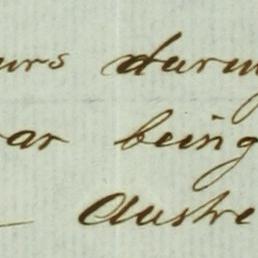 urs during
ar being
Austre